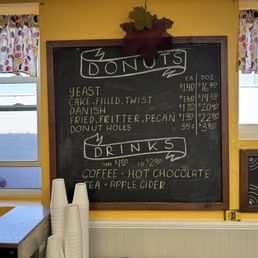 DONUTS
EA DOZ
YEAST $1.40 $16.40
CAKE, FILLED, TWIST $1.60 $19.20
DANISH
FRIED, FRITTER, PECAN $1.90 $22.80
DONUT HOLES 35¢ $3.80
DRINKS
SM $1.80 16 $2.80
COFFEE + HOT CHOCOLATE
TEA + APPLE CIDER